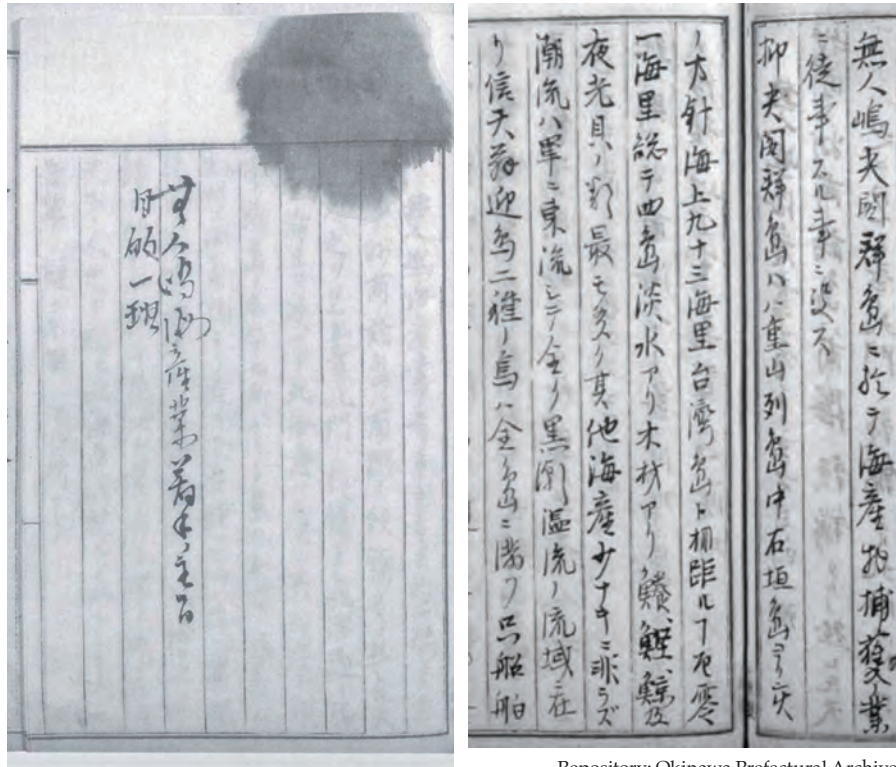 無人嶋 産業着手ノ主旨
目的一班
無人嶋尖閣群島ニ於テ海産物捕獲ノ業
ニ従事スル事ニ決ス
抑尖閣群島ハ八重山列島中石垣島ヨリ亥
ノ方針海上九十三海里台湾島ト相距ルヿ百零
一海里総テ四島淡水アリ木材アリ鱶、鰹、鯨及
夜光貝ノ類最モ多ク其他海産少ナキニ非ラズ
潮流ハ単ニ東流シテ全ク黒潮温流ノ流域ニ在
リ信天翁迎鳥二種ノ鳥ハ全島ニ満ツ只船舶
Repository: Okinawa Prefectural Archive